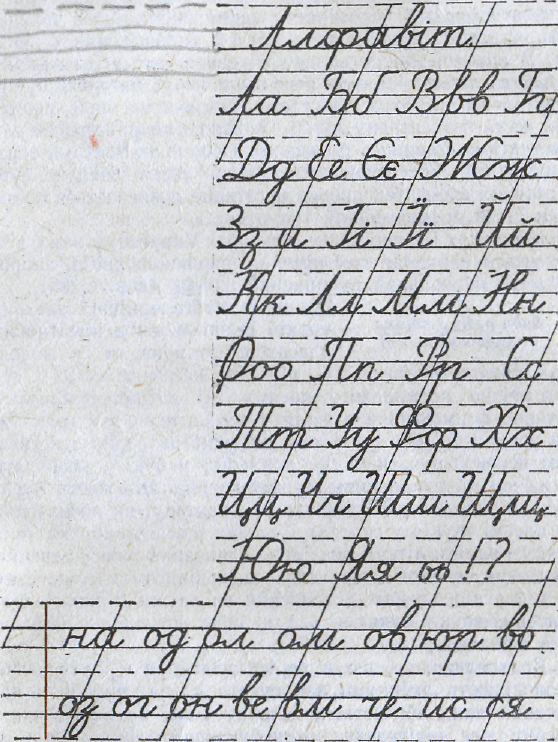 Алфавіт.
Аа Бб Ввв Гг
Дд Ее Єє Жж
Зз и Її Її Йй
Кк Лл Мм Нн
Ооо Пп Рр Сс
Тт Уу Фф Хх
Цц Чч Шш Щщ
Юю Яя ьь ! ?
на од ол ом ов юр во
оз ог он ве вм че ис ся